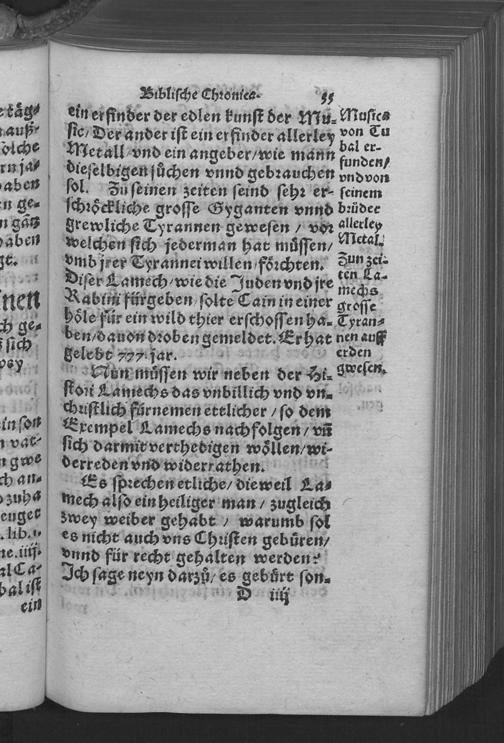 Biblische Chronica. 55
ein erfinder der edlen kunst der Mu-
sic/ Der ander ist ein erfinder allerley
Metall/ vnd ein angeber/ wie mann
dieselbigen sůchen vnnd gebrauchen
sol. Zů seinen zeiten seind sehr er-
schröckliche grosse Gyganten vnnd
grewliche Tyrannen gewesen / vor
welchen sich jederman hat müssen/
vmb jrer Tyrannei willen/ förchten.
Diser Lamech/ wie die Juden vnd jre
Rabini fürgeben/ solte Cain in einer
höle für ein wild thier erschossen ha-
ben/ dauon droben gemeldet. Er hat
gelebt 777. jar.
Nun müssen wir neben der Hi-
stori Lamechs das vnbillich vnd vn-
christlich fürnemen ettlicher / so dem
Exempel Lamechs nachfolgen/ vñ
sich darmit verthedigen wöllen/ wi-
derreden vnd widerrathen.
Es sprechen etliche/ dieweil La-
mech also ein heiliger man / zugleich
zwey weiber gehabt / warumb sol
es nicht auch vns Christen gebüren/
vnnd für recht gehalten werden?
Ich sage neyn darzů/ es gebürt son-
D iiij
Musica
von Tu
bal er-
funden/
vnd von
seinem
brüder
allerley
Metal.
Zun zei-
ten La-
mechs
grosse
Tyran-
nen auff
erden
gwesen.
e täg-
auß-
olche
rn ja-
aben
n ge-
n gātz
haben
gt.
nen
ch ge-
sich
in son
n vat-
n gwe
ch an-
zuha
euget
. lib.
ne. iiij.
al Ca-
bal ist
ein